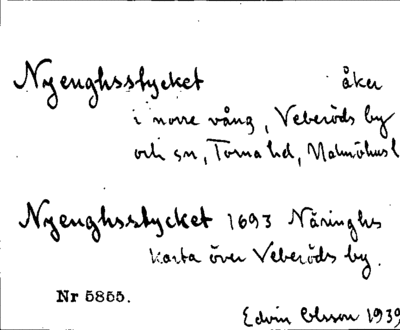 Nyenghsstycket åker
i norre vång, Veberöds by
och sn, Torna hd, Malmöhus l
Nyenghsstycket 1693 Näringhs
karta över Veberöds by.
Nr 5855.
Edvin Olsson 1939